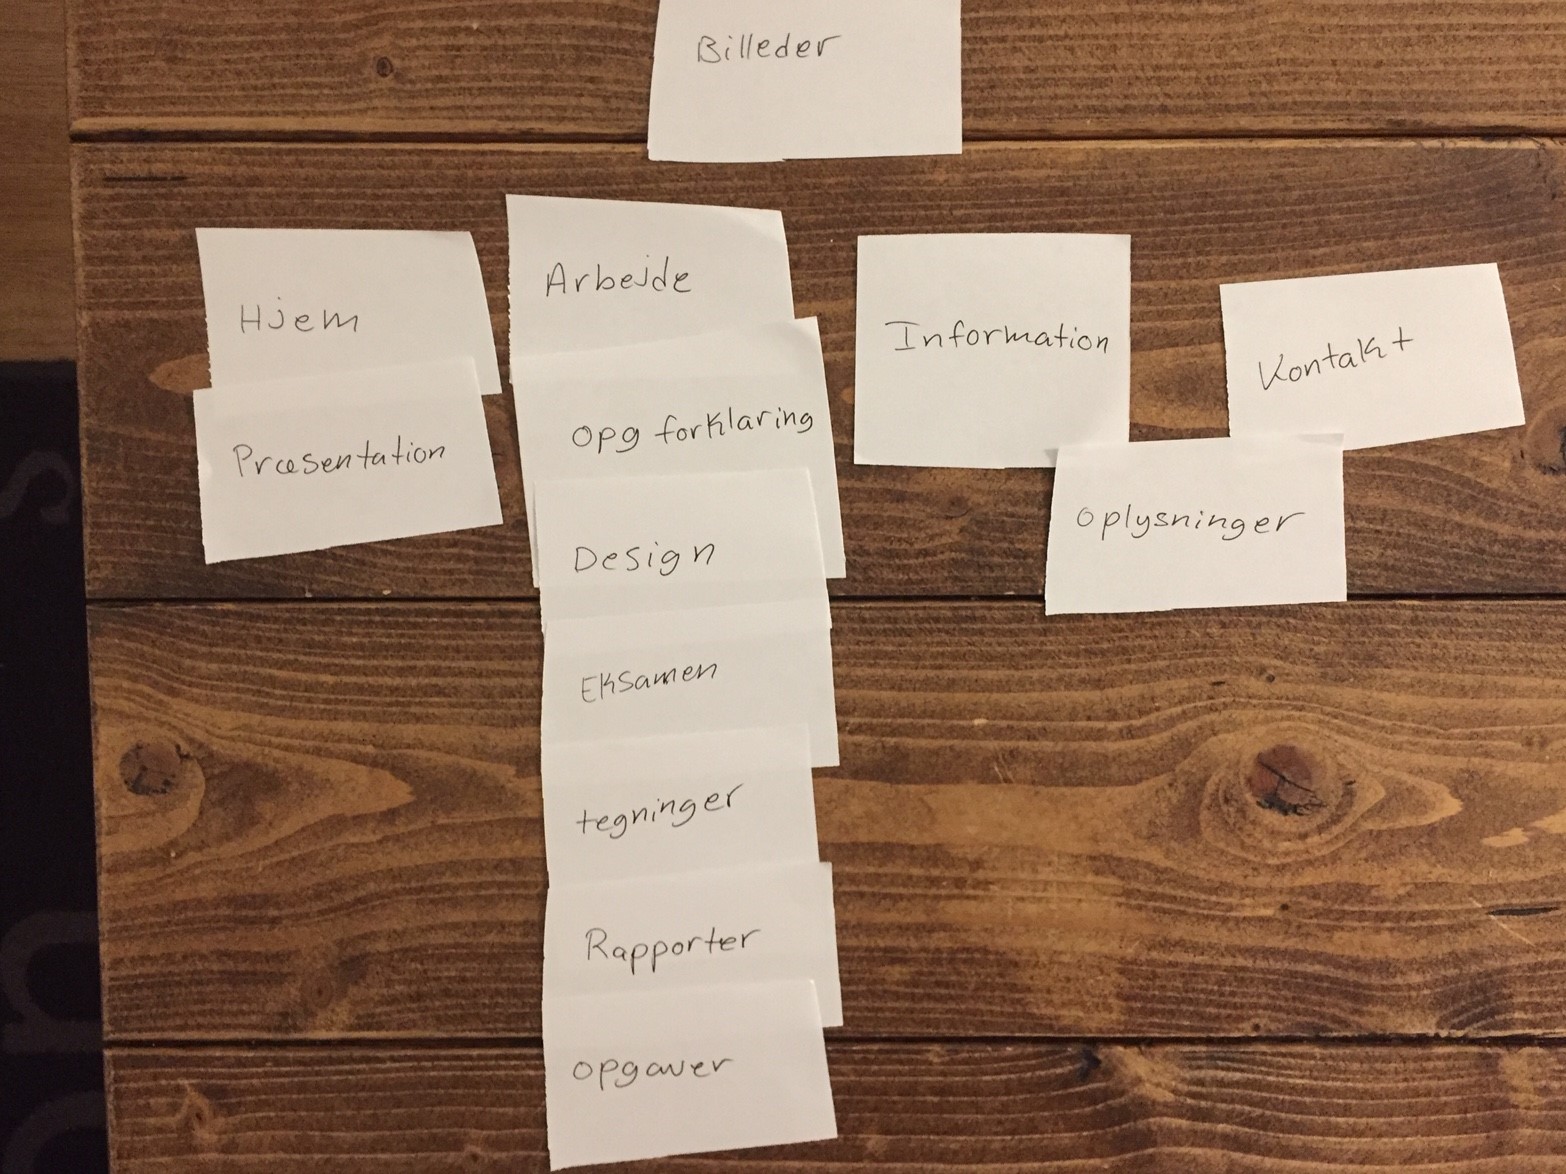 Billeder
Hjem
Præsentation
Arbejde
Opg forklaring
Design
Eksamen
tegninger
Rapporter
opgaver
Information
Kontakt
oplysninger